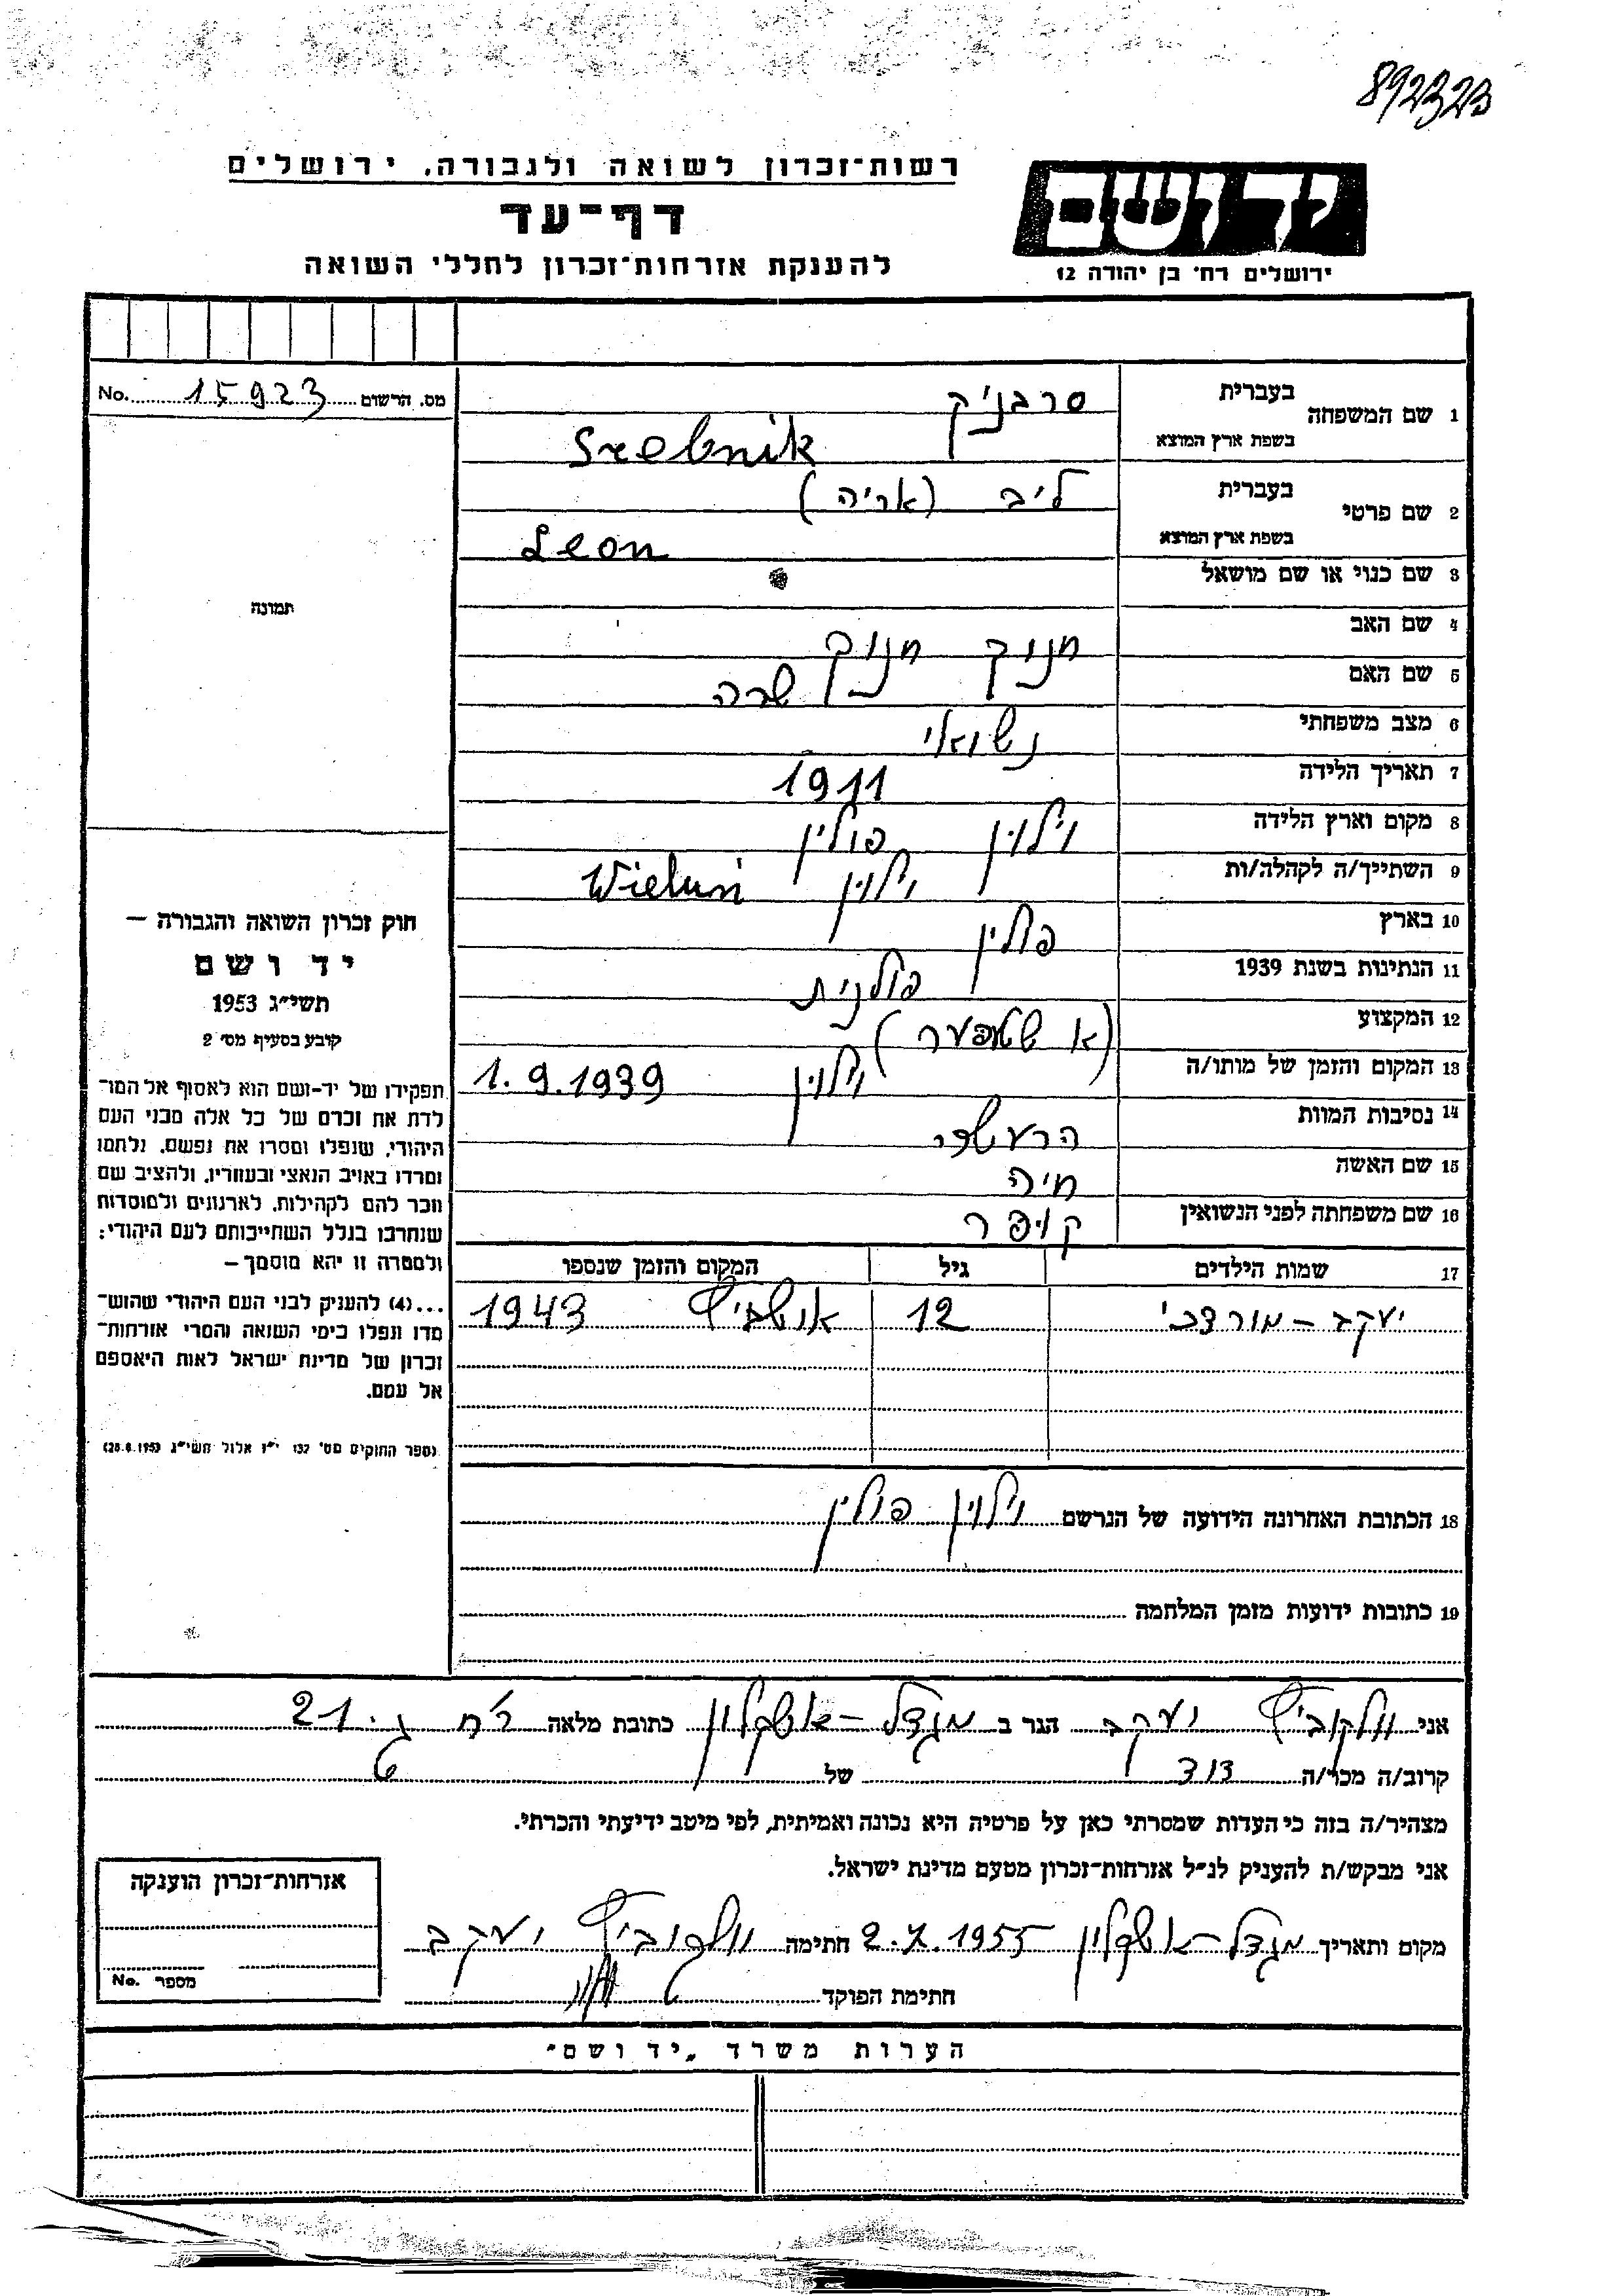 892323
רשות־זכרון לשואה ולגבורה, ירושלים
יד ושם
דף־עד
ירושלים רח׳ בן יהודה 12
להענקת אזרחות־זכרון לחללי השואה
מס. הרשום 15923 No.
1 שם המשפחה
בעברית סרבניק
בשפת ארץ המוצא Srebnik
2 שם פרטי
בעברית ליב (אריה)
בשפת ארץ המוצא Leon
3 שם כנוי או שם מושאל
4 שם האב חנוך חנוך
5 שם האם שרה
6 מצב משפחתי נשואי
7 תאריך הלידה 1911
8 מקום וארץ הלידה וילוין פולין
9 השתייך/ה לקהלה/ות וילוין Wieluń
10 בארץ פולין
11 הנתינות בשנת 1939 פולנית
12 המקצוע
13 המקום והזמן של מותו/ה וילוין 1.9.1939
14 נסיבות המוות
15 שם האשה חיה
16 שם משפחתה לפני הנשואין קופר
17 שמות הילדים גיל המקום והזמן שנספו
יעקב – מורדכי 12 אושביץ 1943
18 הכתובת האחרונה הידועה של הנרשם וילוין פולין
19 כתובות ידועות מזמן המלחמה
תמונה
חוק זכרון השואה והגבורה –
יד ושם
תשי״ג 1953
קובע בסעיף מס׳ 2
תפקידו של יד-ושם הוא לאסוף אל המו־
לדת את זכרם של כל אלה מבני העם
היהודי, שנפלו ומסרו את נפשם, נלחמו
ומרדו באויב הנאצי ובעוזריו, ולהציב שם
וזכר להם לקהילות, לארגונים ולמוסדות
שנחרבו בגלל השתייכותם לעם היהודי;
ולמטרה זו יהא מוסמך –
...(4) להעניק לבני העם היהודי שהוש־
מדו ונפלו בימי השואה והמרי אזרחות־
זכרון של מדינת ישראל לאות היאספם
אל עמם.
(ספר החוקים מס׳ 132 י״ז אלול תשי״ג 28.8.1953)
אני וולקוביץ יעקב הגר ב מגדל – אשקלון כתובת מלאה רח ג. 21
קרוב/ה מכר/ה דוד של
מצהיר/ה בזה כי העדות שמסרתי כאן על פרטיה היא נכונה ואמיתית, לפי מיטב ידיעתי והכרתי.
אני מבקש/ת להעניק לנ״ל אזרחות־זכרון מטעם מדינת ישראל.
מקום ותאריך מגדל – אשקלון 2.X.1955 חתימה וולקוביץ יעקב
חתימת הפוקד
אזרחות־זכרון הוענקה
מספר No.
הערות משרד „יד ושם״